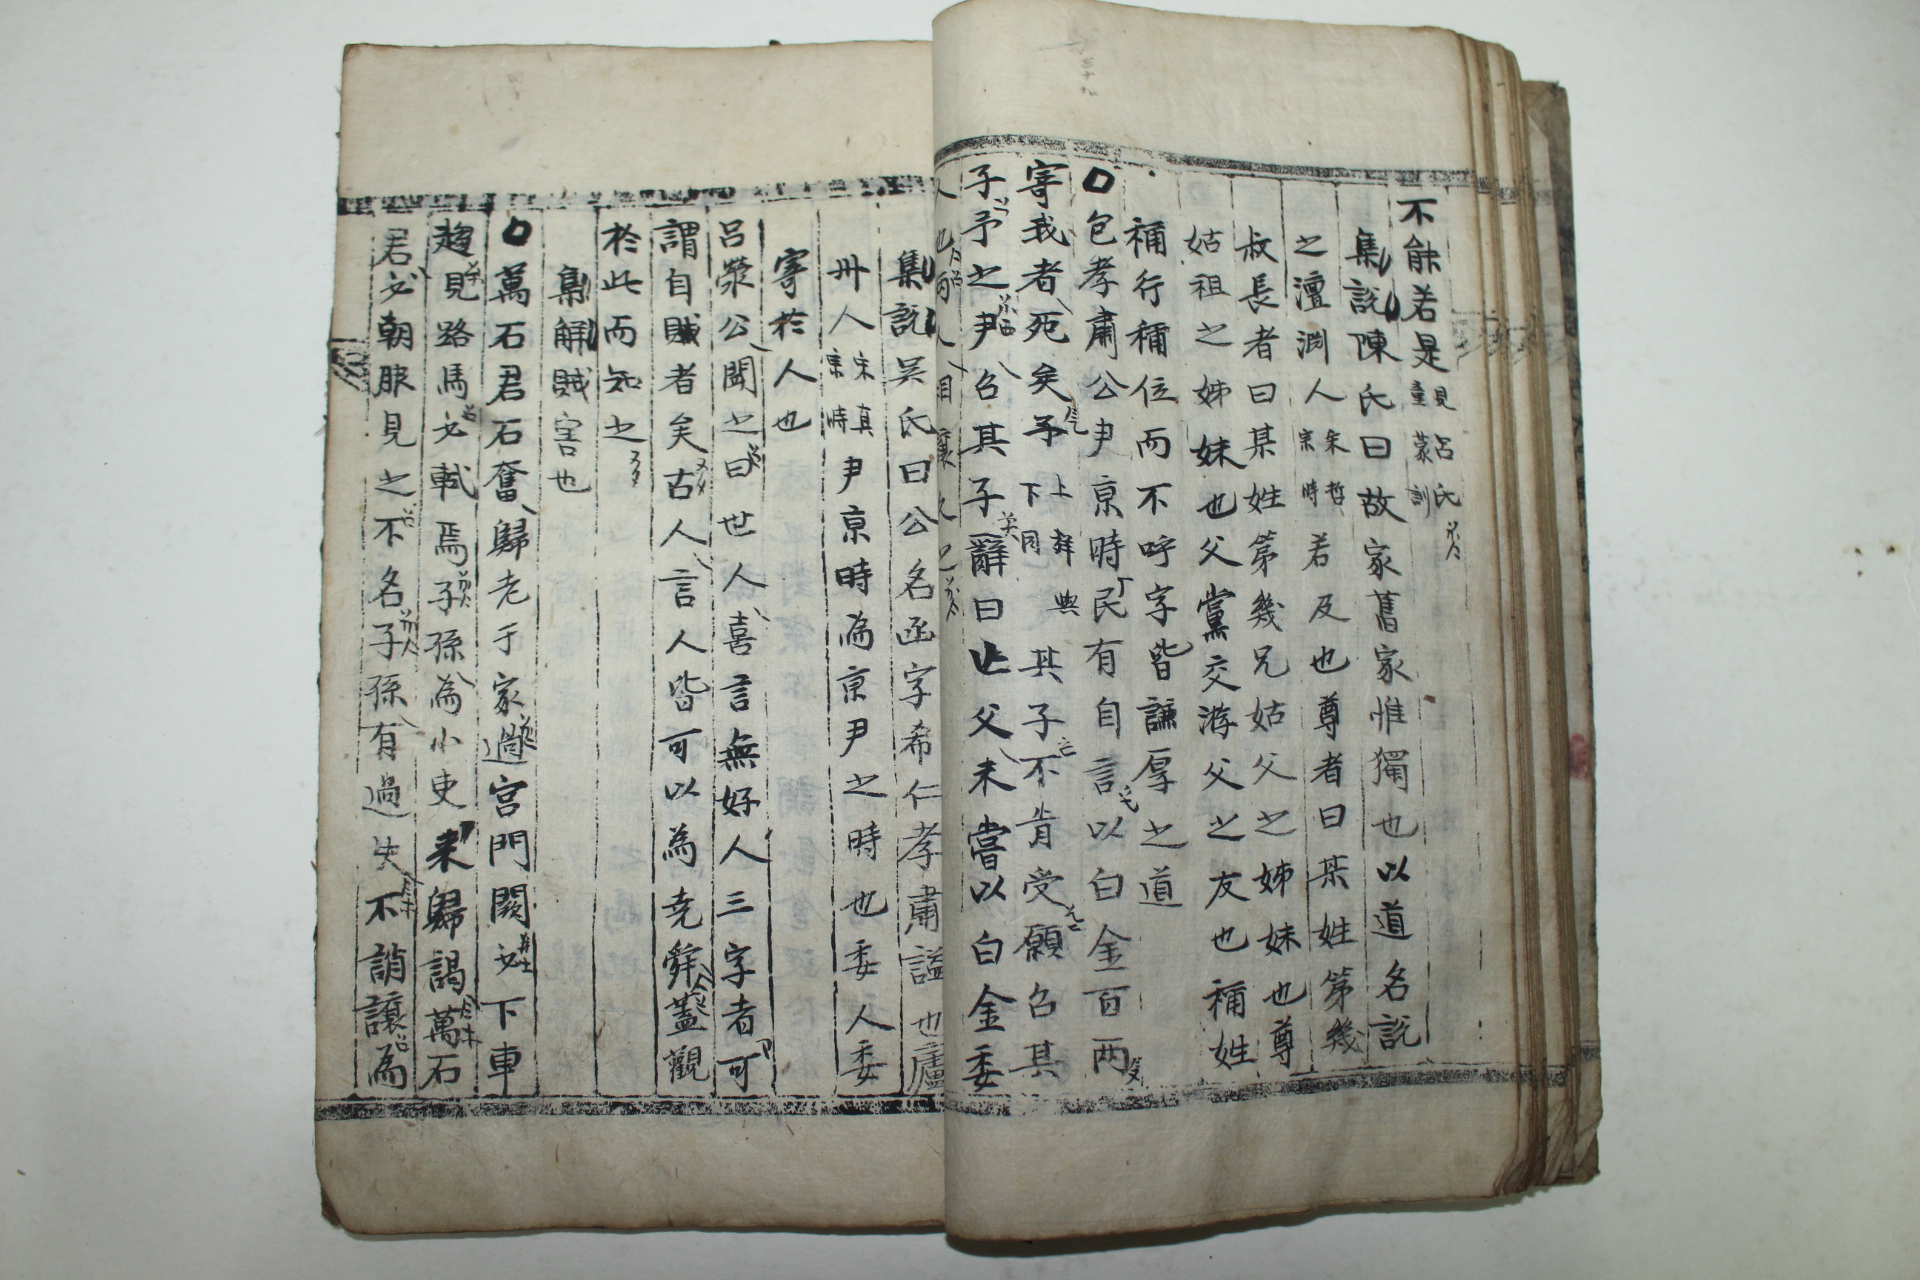 不能若是見呂氏童蒙訓
集說陳氏曰故家舊家惟獨也以道名說
之澶淵人宋哲宗時若及也尊者曰某姓第幾
叔長者曰某姓第幾兄姑父之姊妹也尊
姑祖之姊妹也父黨交游父之友也稱姓
稱行稱位而不呼字皆謙厚之道
包孝肅公尹京時民有自言以白金百两
寄我者死矣予上辭與下同其子不肯受願召其
子予之尹召其子辭曰亡父未嘗以白金委
人也两人相讓久之
集說吳氏曰公名丞字希仁孝肅謚也廬
州人宋真宗時尹京時為京尹之時也委人委
寄於人也
呂滎公聞之曰世人喜言無好人三字者可
謂自賊者矣古人言人皆可以為尭舜蓋觀
於此而知之
集解賊害也
萬石君石奮歸老于家過宮門闕必下車
趨見路馬必軾焉子孫為小吏来歸謁萬石
君必朝服見之不名子孫有過失不誚讓為